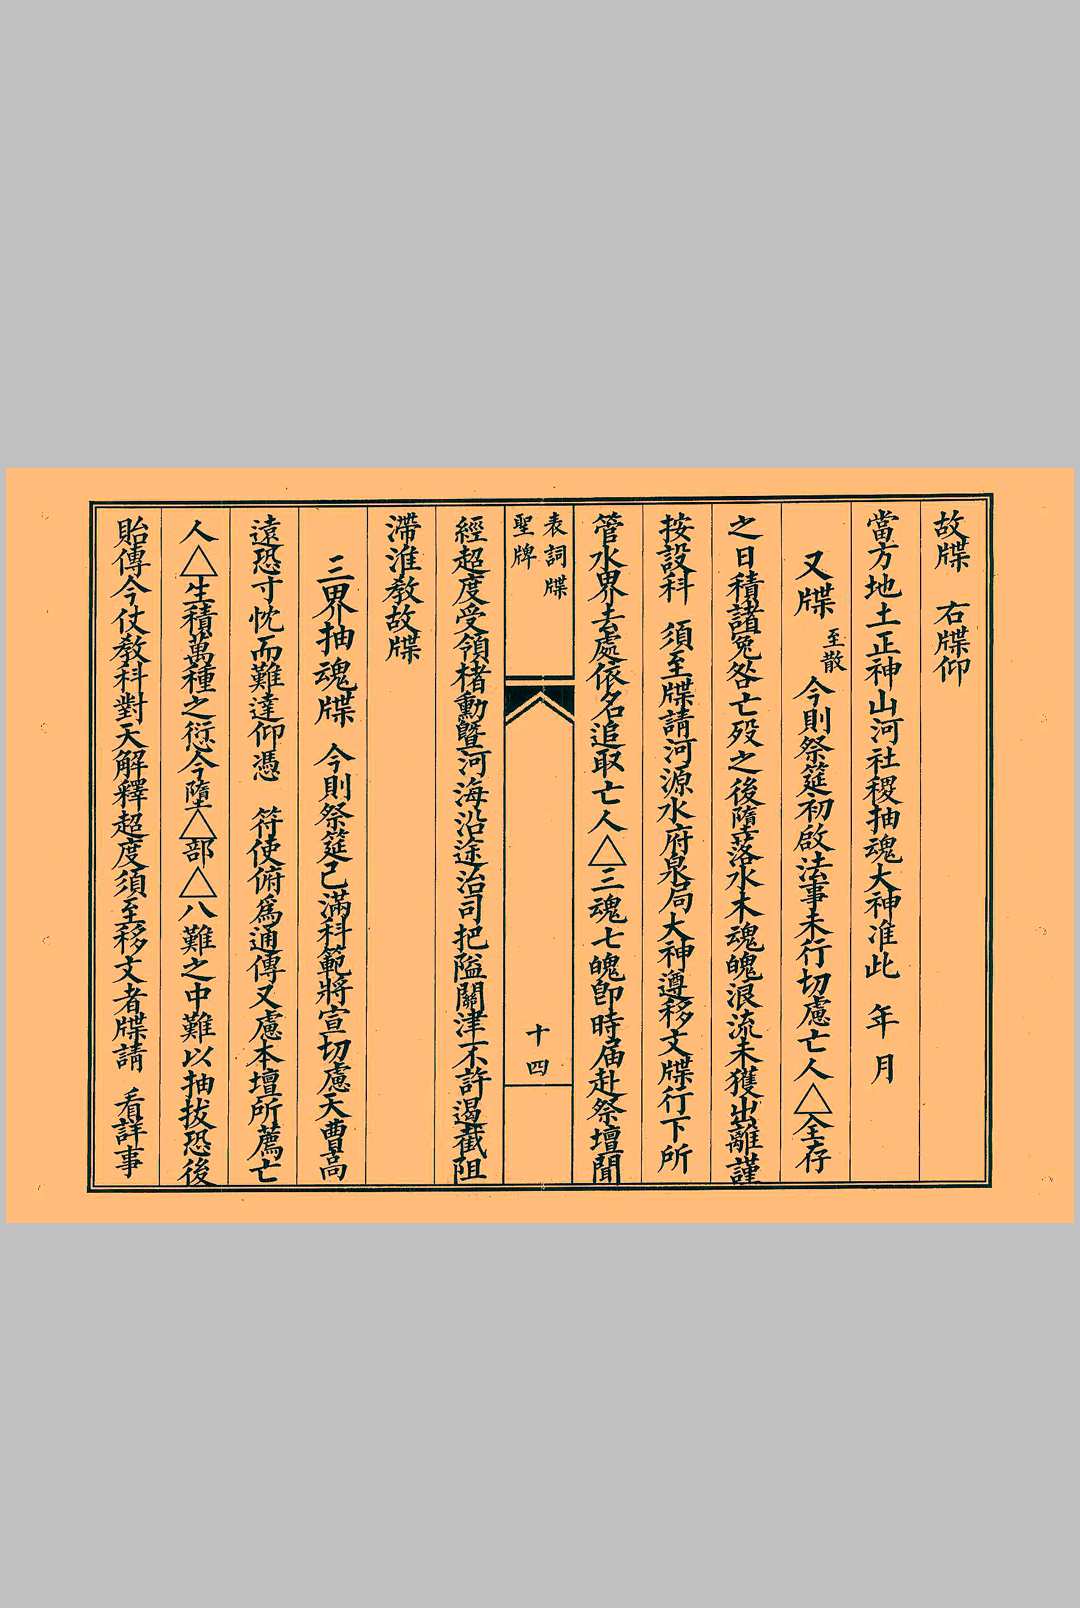 故牒　右牒仰
當方地土正神山河社稷抽魂大神准此　年　月
又牒　至散　今則祭筵初啟法事未行切慮亡人△全存
之日積諸冤咎亡歿之後墮落水木魂魄浪流未獲出離謹
按設科　須至牒請河源水府泉局大神遵移文牒行下所
管水界去處依名追取亡人△三魂七魄卽時届赴祭壇聞
表詞牒
聖牌
十四
經超度受領楮勳曁河海沿途治司把隘關津不許遏截阻
滯淮敎故牒
三界抽魂牒　今則祭筵已滿科範將宣切慮天曹高
遠恐寸忱而難達仰憑　符使俯爲通傳又慮本壇所薦亡
人△生積萬種之愆今墮△部△八難之中難以抽拔恐後
貽傳今仗敎科對天解釋超度須至移文者牒請　看詳事